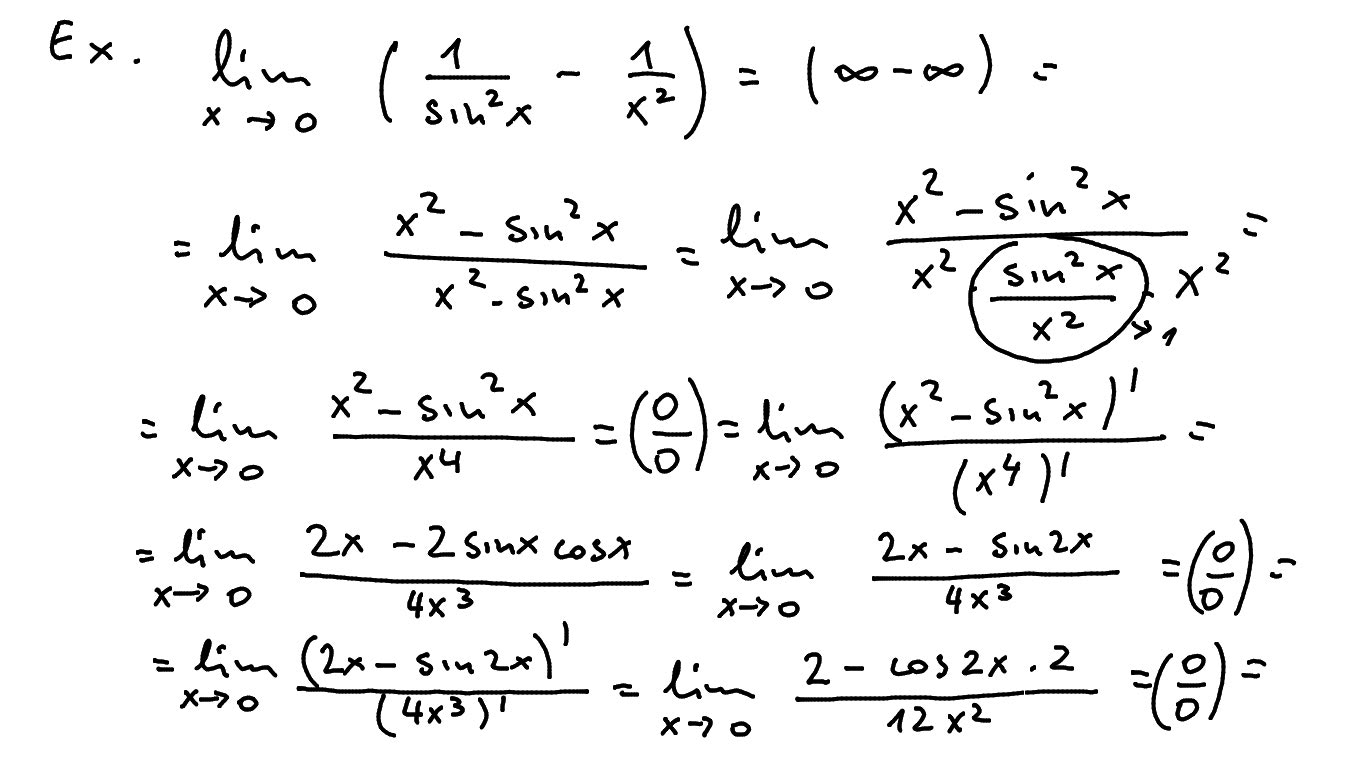 Ex. lim_{x→0} (1/sin²x - 1/x²) = (∞-∞) =
= lim_{x→0} (x² - sin²x)/(x² - sin²x) = lim_{x→0} (x² - sin²x)/(x² (sin²x/x²)→1 · x²) =
= lim_{x→0} (x² - sin²x)/x⁴ = (0/0) = lim_{x→0} (x² - sin²x)'/(x⁴)' =
= lim_{x→0} (2x - 2 sinx cosx)/4x³ = lim_{x→0} (2x - sin2x)/4x³ = (0/0) =
= lim_{x→0} (2x - sin2x)'/(4x³)' = lim_{x→0} (2 - cos2x . 2)/12x² = (0/0) =